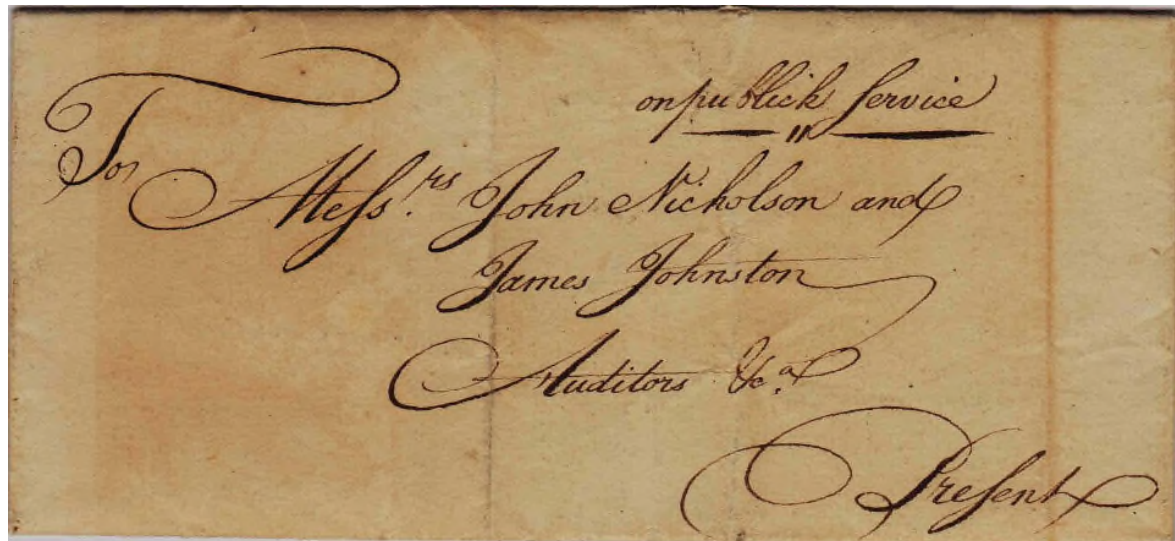 on publick Service
To
Mess.rs John Nicholson and
James Johnston
Auditors &c.a
Present